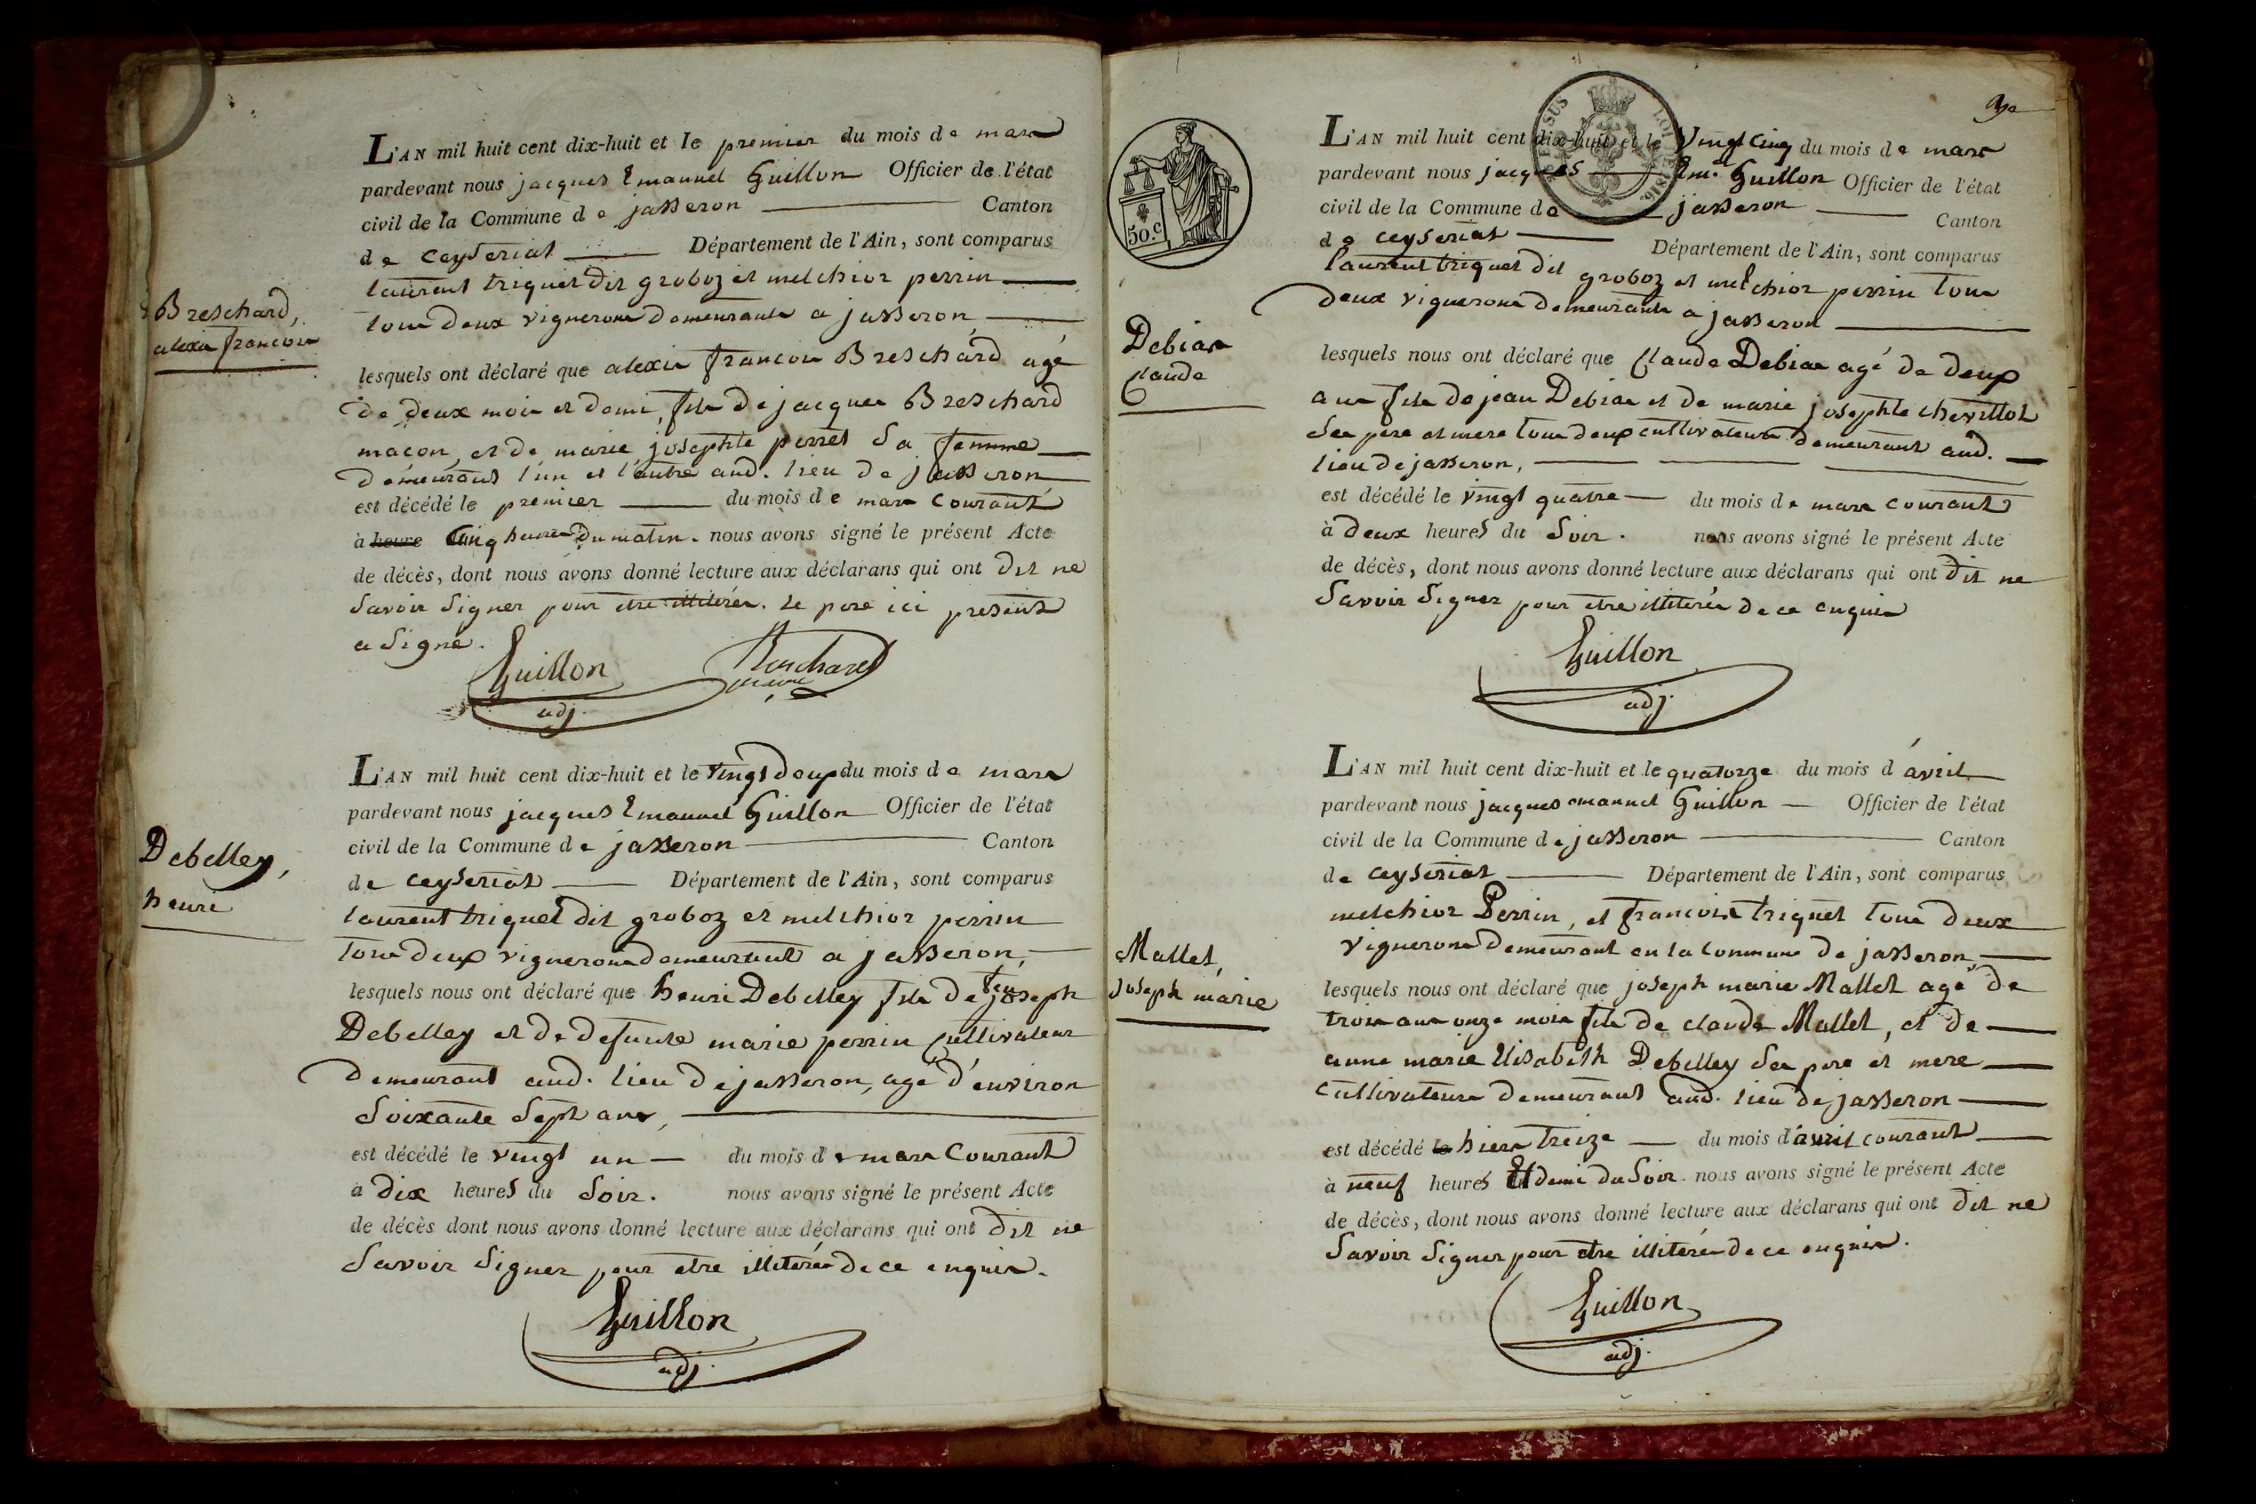 L'AN mil huit cent dix-huit et le premier du mois de mars
pardevant nous jacques Emanuel Guillon Officier de l'état
civil de la Commune de jasseron Canton
de ceyseriat Département de l'Ain, sont comparus
laurent triquet dit groboz et melchior perrin
tous deux vignerons demeurants a jasseron,
Breschard,
alexis francois
lesquels ont déclaré que alexis francois Breschard agé
de deux mois et demi, fils de jacques Breschard
macon, et de marie josephte perret sa femme
demeurant l'un et l'autre aud. lieu de jasseron
est décédé le premier du mois de mars courant
à heure cinq heures du matin. nous avons signé le présent Acte
de décès, dont nous avons donné lecture aux déclarans qui ont dit ne
savoir signer pour etre illiterés. le pere ici present
a signé.
Guillon
adj.
L'AN mil huit cent dix-huit et le vingt deux du mois de mars
pardevant nous jacques Emanuel Guillon Officier de l'état
civil de la Commune de jasseron Canton
de ceyseriat Département de l'Ain, sont comparus
laurent triquet dit groboz et melchior perrin
tous deux vignerons demeurant a jasseron,
Debelley,
henri
lesquels nous ont déclaré que henri Debelley fils de feu joseph
Debelley et de defunte marie perrin cultivateur
demeurant aud. lieu de jasseron, agé d'environ
soixante sept ans,
est décédé le vingt un du mois de mars courant
à dix heures du soir. nous avons signé le présent Acte
de décès dont nous avons donné lecture aux déclarans qui ont dit ne
savoir signer pour etre illiterés de ce enquis.
Guillon
adj.
50.c
L'AN mil huit cent dix-huit et le vingt cinq du mois de mars
pardevant nous jacques Eml. Guillon Officier de l'état
civil de la Commune de jasseron Canton
de ceyseriat Département de l'Ain, sont comparus
laurent triquet dit groboz et melchior perrin tous
deux vignerons demeurants a jasseron
Debias
Claude
lesquels nous ont déclaré que Claude Debias agé de deux
ans fils de jean Debias et de marie josephte chevillot
ses pere et mere tous deux cultivateurs demeurant aud.
lieu de jasseron,
est décédé le vingt quatre du mois de mars courant
à deux heures du soir. nous avons signé le présent Acte
de décès, dont nous avons donné lecture aux déclarans qui ont dit ne
savoir signer pour etre illiterés de ce enquis
Guillon
adj
L'AN mil huit cent dix-huit et le quatorze du mois d'avril
pardevant nous jacques emanuel Guillon Officier de l'état
civil de la Commune de jasseron Canton
de ceyseriat Département de l'Ain, sont comparus
melchior Perrin, et francois triquet tous deux
vignerons demeurant en la commune de jasseron,
Mallet,
joseph marie
lesquels nous ont déclaré que joseph marie Mallet agé de
trois ans onze mois fils de claude Mallet, et de
anne marie Elisabeth Debelley ses pere et mere
cultivateurs demeurant aud. lieu de jasseron
est décédé le hier treize du mois d'avril courant
à neuf heures Et demi du soir. nous avons signé le présent Acte
de décès, dont nous avons donné lecture aux déclarans qui ont dit ne
savoir signer pour etre illiterés de ce enquis.
Guillon
adj.